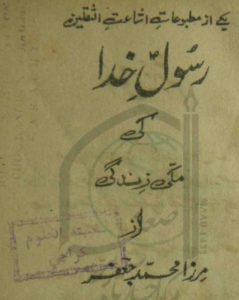 یکے از مطبوعاتِ اشاعتِ الثقلین
رسولِ خدا
کی
مکی زندگی
از
مرزا محمد جعفر